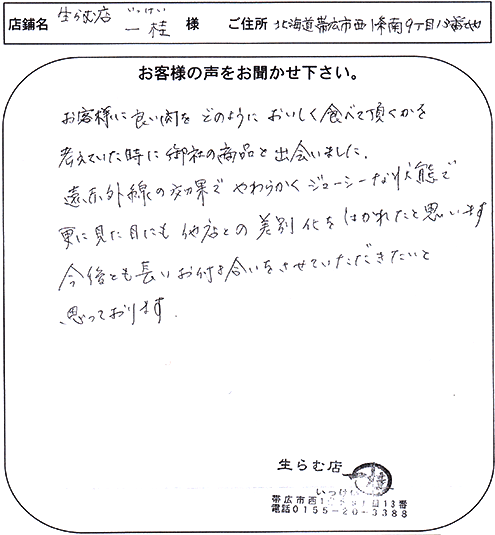 店舗名 生らむ店 いっけい 一桂 様 ご住所 北海道帯広市西1条南9丁目13番地
お客様の声をお聞かせ下さい。
お客様に良い肉をどのようにおいしく食べて頂くかを
考えていた時に御社の商品と出会いました.
遠赤外線の効果でやわらかくジューシーな状態で
更に見た目にも他店との差別化をはかれたと思います
今後とも長いお付き合いをさせていただきたいと
思っております.
生らむ店 一桂
いっけい
帯広市西1条南9丁目13番
電話0155-20-3388